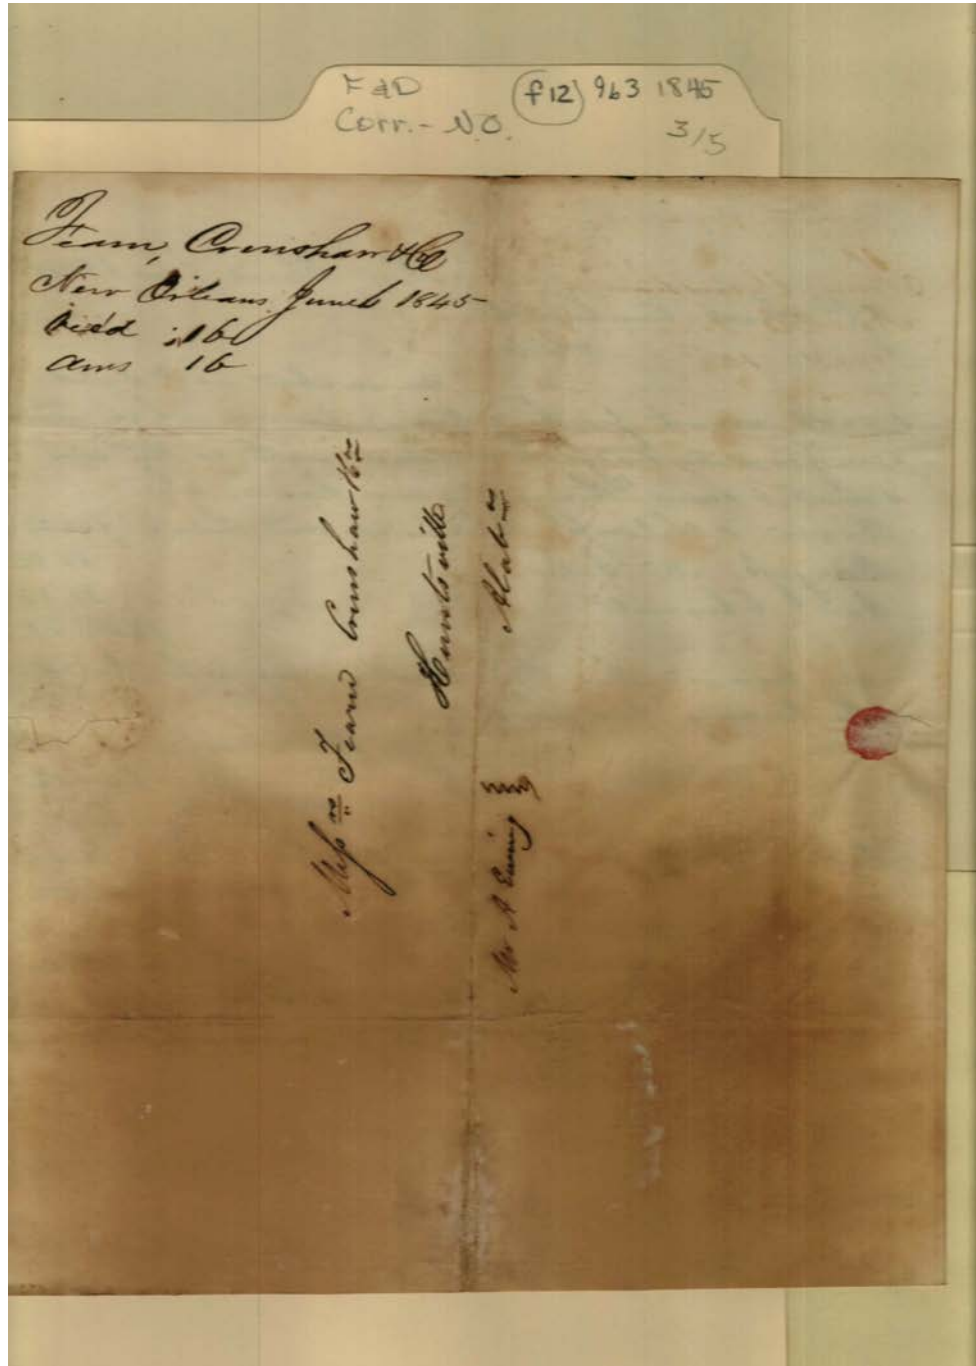 F&D (f12) 963 1845
Corr. - N.O. 3/5
Fearn, Crenshaw & Co
New Orleans June 6 1845
Rec'd 16
Ans 16
Mess rs Fearn Crenshaw & Co
Huntsville
Alab a
Mr A Ewing